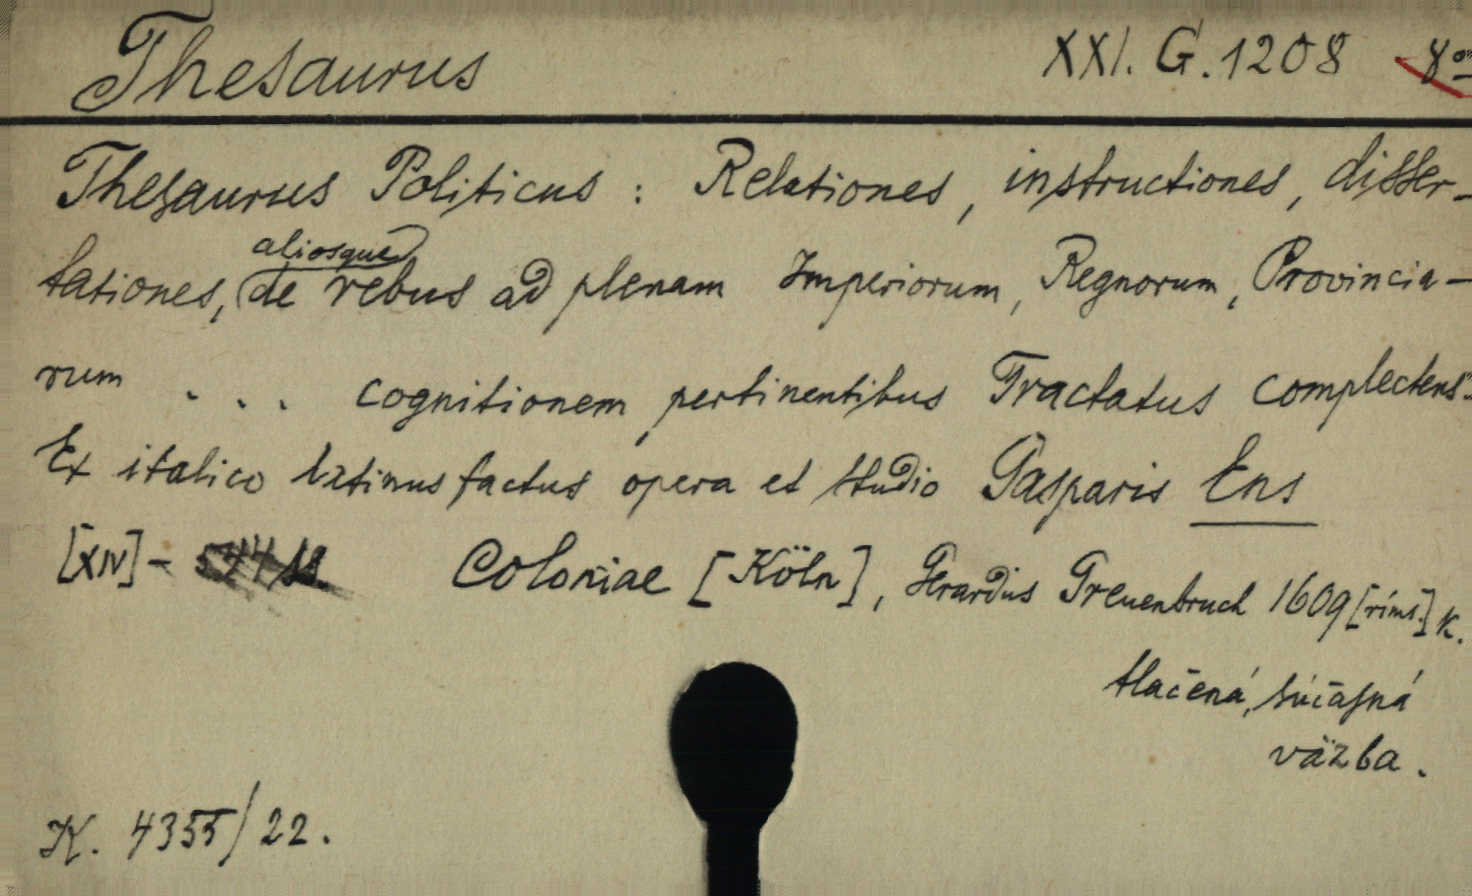 Thesaurus XXI. G. 1208 8o
Thesaurus Politicus : Relationes, instructiones, disser-
tationes, aliosque de rebus ad plenam Imperiorum, Regnorum, Provincia-
rum . . . cognitionem pertinentibus Tractatus complectens.
Ex italico latinus factus opera et studio Gasparis Ens
[XIV] - 544 ss. Coloniae [Köln], Gerardus Greuenbruch 1609 [rims.] K.
tlačená, súčasná
väzba.
K. 4355/22.